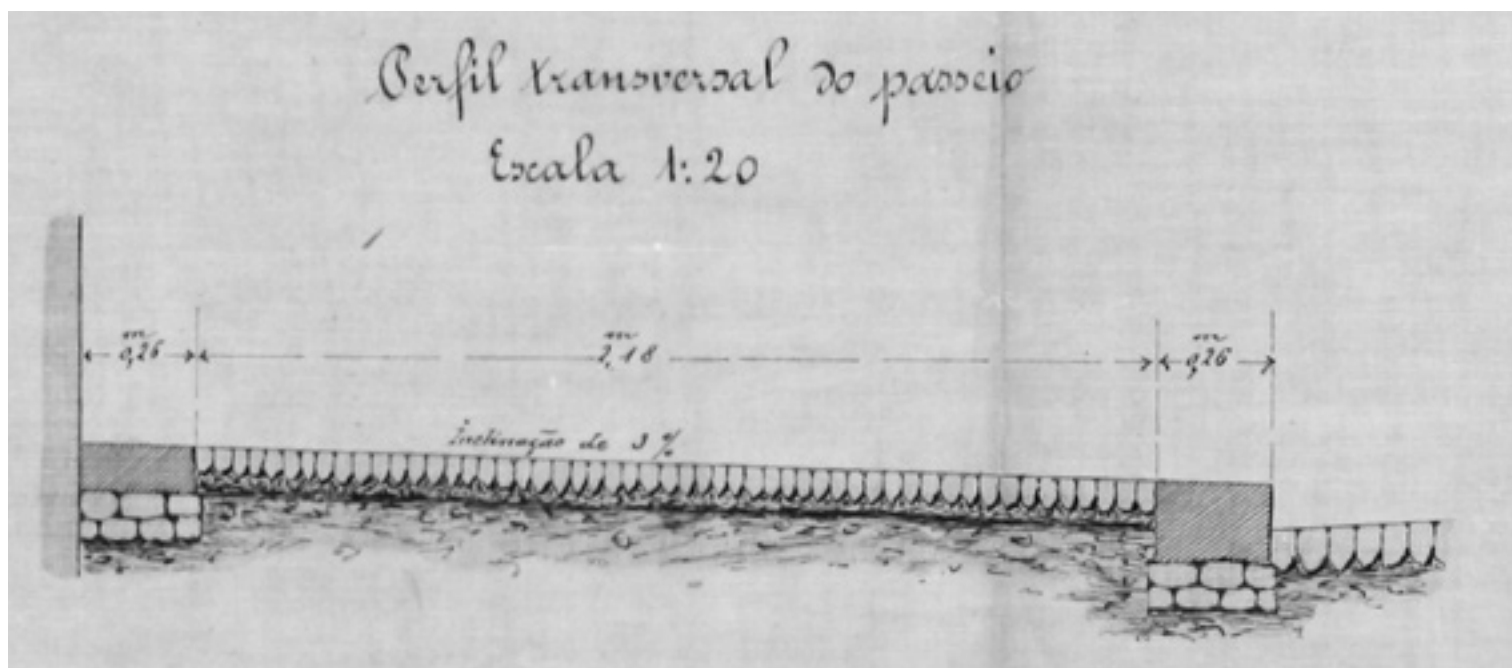 Perfil transversal do passeio
Escala 1:20
m m m
0,26 2,18 0,26
Inclinação de 3 %